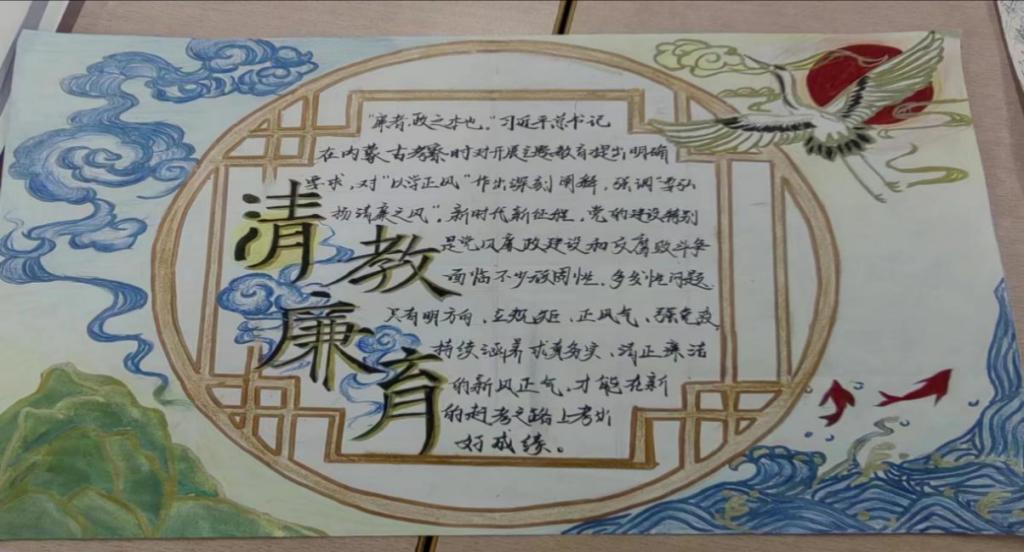 清廉
教育
"廉者，政之本也。"习近平总书记
在内蒙古考察时对开展主题教育提出明确
要求，对"以学正风"作出深刻阐释，强调"要弘
扬清廉之风"。新时代新征程，党的建设特别
是党风廉政建设和反腐败斗争
面临不少顽固性、多发性问题
只有明方向、立规矩、正风气、强免疫
持续涵养求真务实、清正廉洁
的新风正气，才能在新
的赶考之路上考出
好成绩。